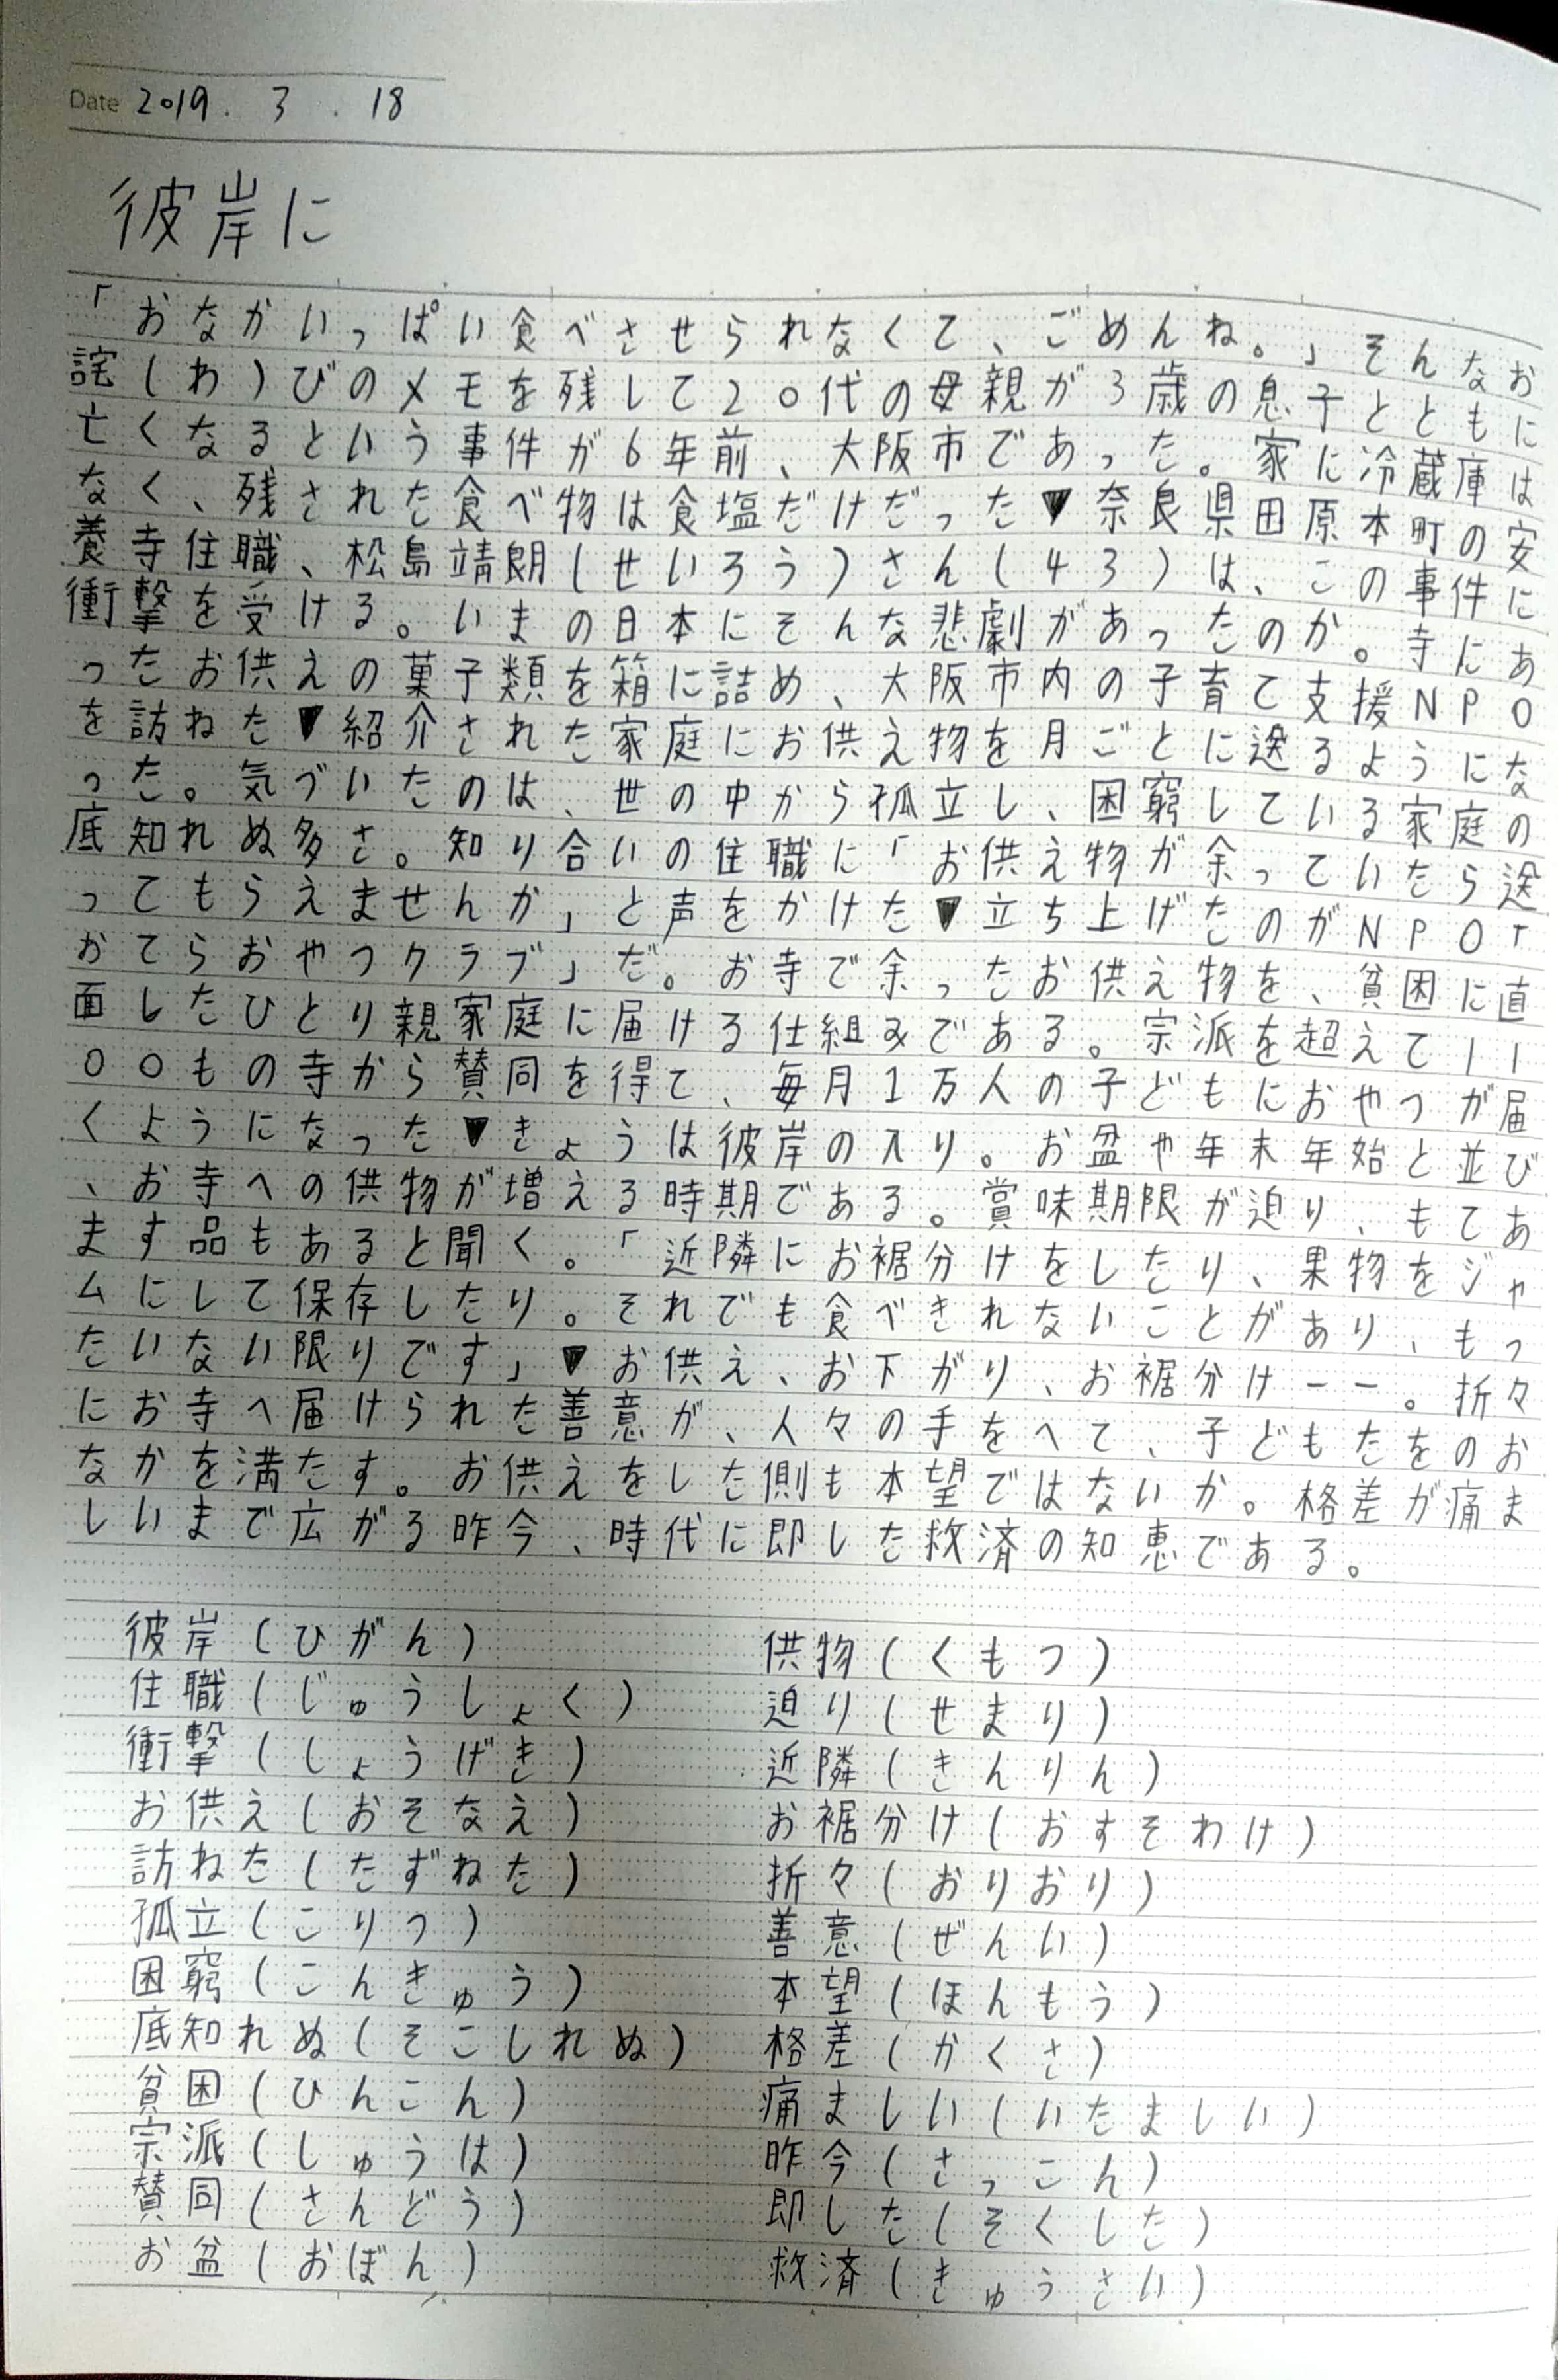 Date 2019. 3. 18
彼岸に
「おなかいっぱい食べさせられなくて、ごめんね。」そんなお
詫(わ)びのメモを残して20代の母親が3歳の息子とともに
亡くなるという事件が6年前、大阪市であった。家に冷蔵庫は
なく、残された食べ物は食塩だけだった▼奈良県田原本町の安
養寺住職、松島靖朗(せいろう)さん(43)は、この事件に
衝撃を受ける。いまの日本にそんな悲劇があったのか。寺にあ
ったお供えの菓子類を箱に詰め、大阪市内の子育て支援NPO
を訪ねた▼紹介された家庭にお供え物を月ごとに送るようにな
った。気づいたのは、世の中から孤立し、困窮している家庭の
底知れぬ多さ。知り合いの住職に「お供え物が余っていたら送
ってもらえませんか」と声をかけた▼立ち上げたのがNPO「
おてらおやつクラブ」だ。お寺で余ったお供え物を、貧困に直
面したひとり親家庭に届ける仕組みである。宗派を超えて11
00もの寺から賛同を得て、毎月1万人の子どもにおやつが届
くようになった▼きょうは彼岸の入り。お盆や年末年始と並び
、お寺への供物が増える時期である。賞味期限が迫り、もてあ
ます品もあると聞く。「近隣にお裾分けをしたり、果物をジャ
ムにして保存したり。それでも食べきれないことがあり、もっ
たいない限りです」▼お供え、お下がり、お裾分けーー。折々
にお寺へ届けられた善意が、人々の手をへて、子どもたをのお
なかを満たす。お供えをした側も本望ではないか。格差が痛ま
しいまで広がる昨今、時代に即した救済の知恵である。
彼岸(ひがん)
住職(じゅうしょく)
衝撃(しょうげき)
お供え(おそなえ)
訪ねた(たずねた)
孤立(こりつ)
困窮(こんきゅう)
底知れぬ(そこしれぬ)
貧困(ひんこん)
宗派(しゅうは)
賛同(さんどう)
お盆(おぼん)
供物(くもつ)
迫り(せまり)
近隣(きんりん)
お裾分け(おすそわけ)
折々(おりおり)
善意(ぜんい)
本望(ほんもう)
格差(かくさ)
痛ましい(いたましい)
昨今(さっこん)
即した(そくした)
救済(きゅうさい)